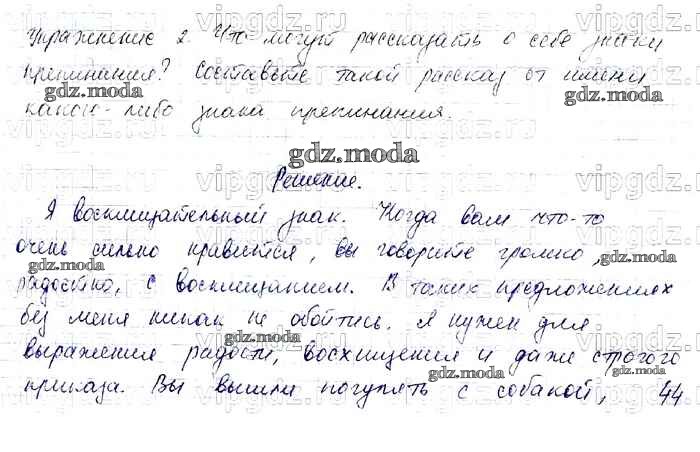 Упражнение 2. Что могут рассказать о себе знаки
препинания? Составьте такой рассказ от имени
какого-либо знака препинания.
Решение.
Я восклицательный знак. Когда вам что-то
очень сильно нравится, вы говорите громко,
радостно, с восклицанием. В таких предложениях
без меня никак не обойтись. Я нужен для
выражения радости, восхищения и даже строгого
приказа. Вы вышли погулять с собакой, 44